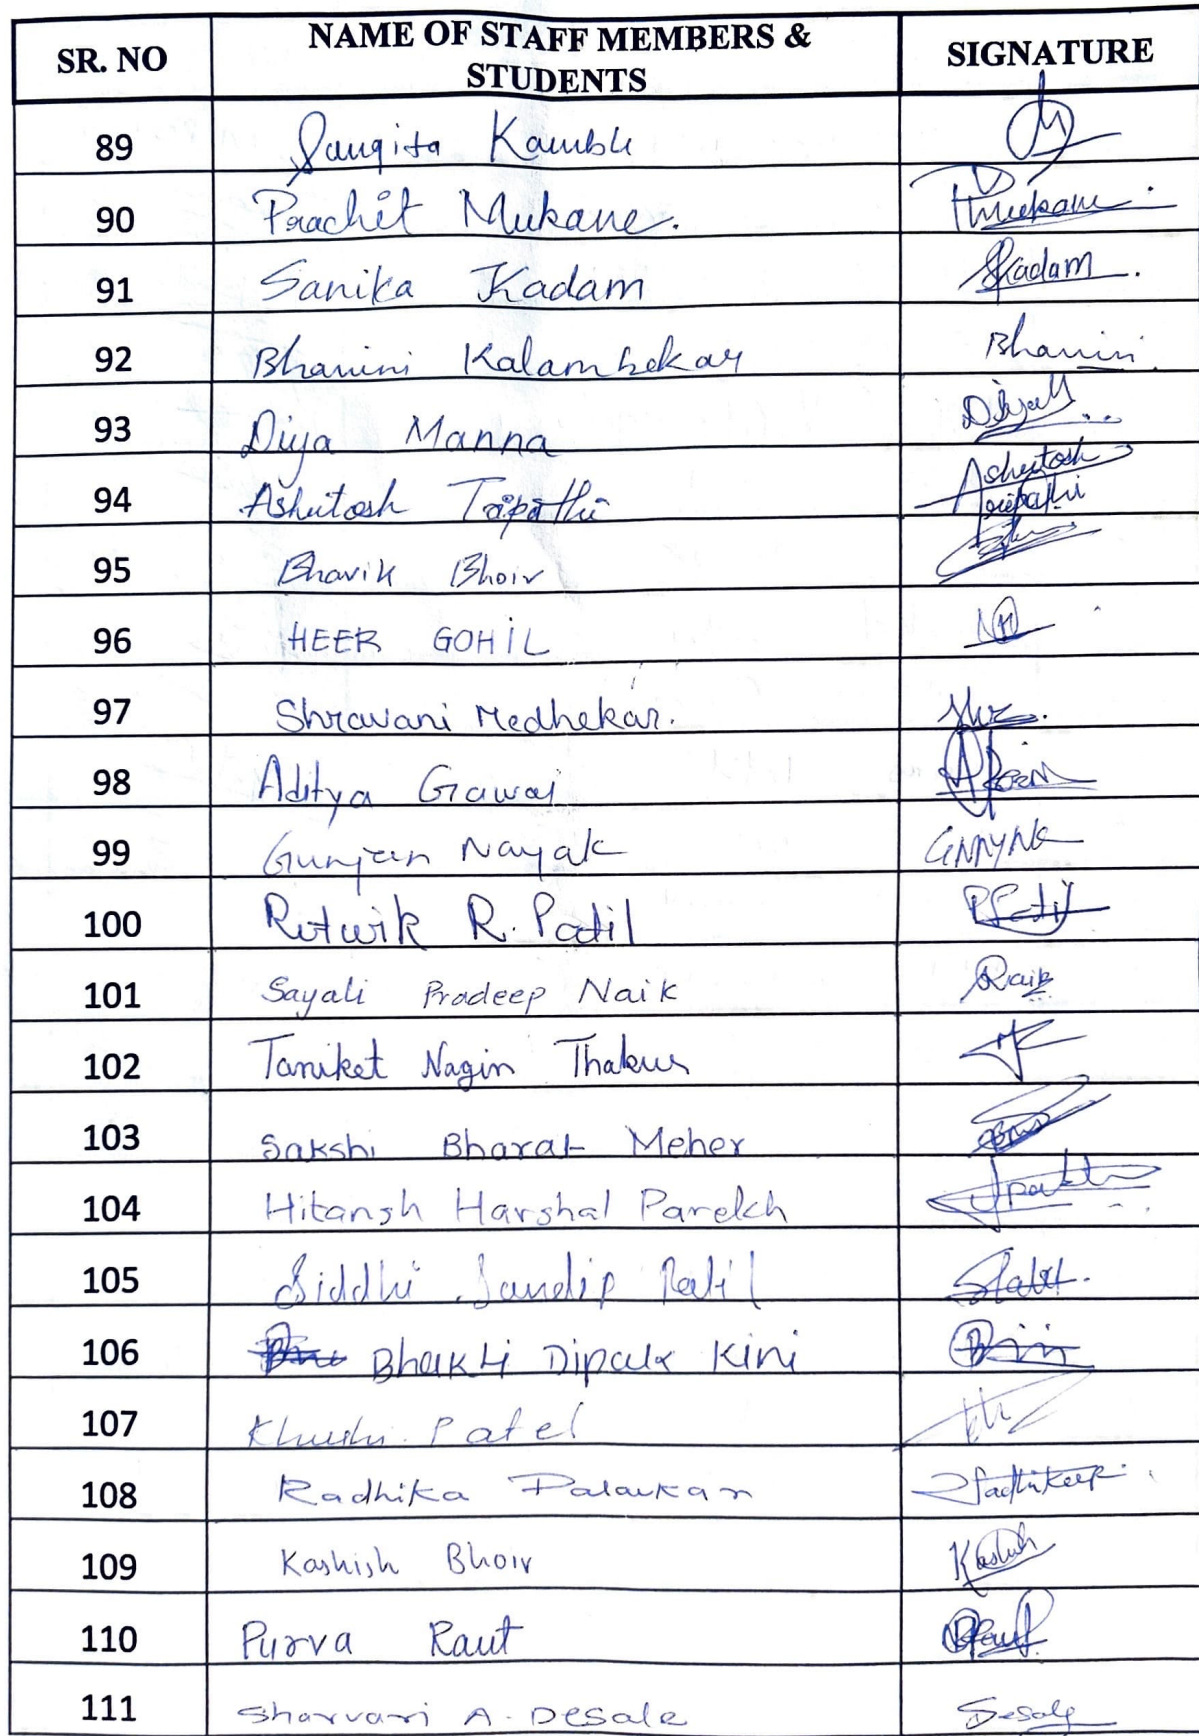 SR. NO NAME OF STAFF MEMBERS & STUDENTS SIGNATURE
89 Sangita Kamble
90 Prachit Mukane. Pmukane
91 Sanika Kadam SKadam.
92 Bhamini Kalambekar Bhamini
93 Diya Manna
94 Ashutosh Tripathi Ashutosh Tripathi
95 Bhavik Bhoir
96 HEER GOHIL
97 Shravani Medhekar.
98 Aditya Gawad
99 Gunjan Nayak
100 Rutwik R. Patil RPatil
101 Sayali Pradeep Naik
102 Taniket Nagin Thakur
103 Sakshi Bharat Meher
104 Hitansh Harshal Parekh
105 Siddhi Sandip Patil
106 Bhakti Dipak Kini
107 Khushi Patel
108 Radhika Palavkar
109 Kashish Bhoir Kashish
110 Purva Raut
111 Sharvari A. Desale Desale